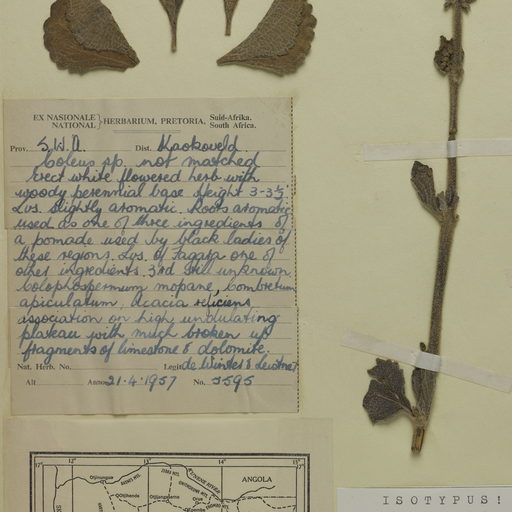 EX NASIONALE } HERBARIUM, PRETORIA, Suid-Afrika.
NATIONAL South Africa.
Prov. S.W.A. Dist. Kaokoveld
Coleus sp. not matched
Erect white flowered herb with
woody perennial base Height 3-3½'
Lvs. slightly aromatic. Roots aromatic
used as one of three ingredients of
a pomade used by black ladies of
these regions. Lvs. of Fagara one of
other ingredients. 3rd still unknown
Colophospermum mopane, Combretum
apiculatum, Acacia reficiens
association on high undulating
plateau with much broken up
fragments of limestone & dolomite.
Nat. Herb. No. Legit de Winter & Leistner
Alt Anno 21·4·1957 No. 5595
17° 12 13 14 15
ANGOLA
CUNENE RIVER
Otjinungua
Otjihende
Otjitanganana
Ohopoho
ISOTYPUS!